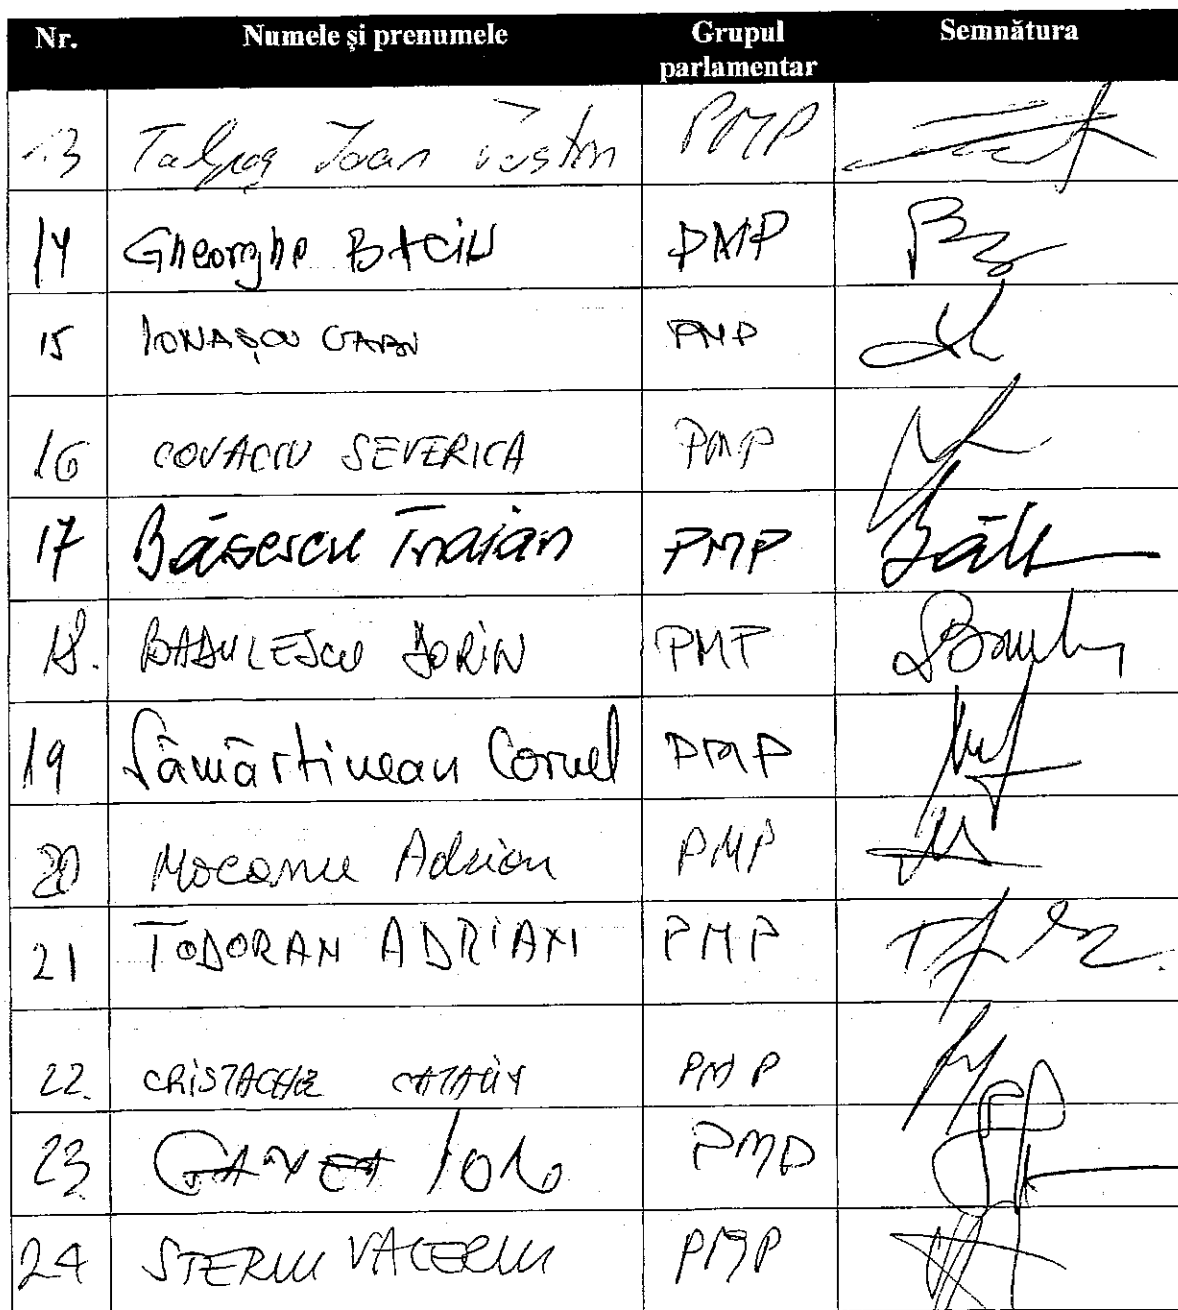 Nr. Numele și prenumele Grupul parlamentar Semnătura
13 Talpaș Ioan Justin PMP
14 Gheorghe BACIU PMP
15 IONAȘCU GABI PMP
16 COVACIU SEVERICA PMP
17 Băsescu Traian PMP
18. BĂDULESCU DORIN PMP
19 Sămărtinean Cornel PMP
20 Mocanu Adrian PMP
21 TODORAN ADRIAN PMP
22. CRISTACHE CATALIN PMP
23 PMP
24 STERIU VALERIU PMP